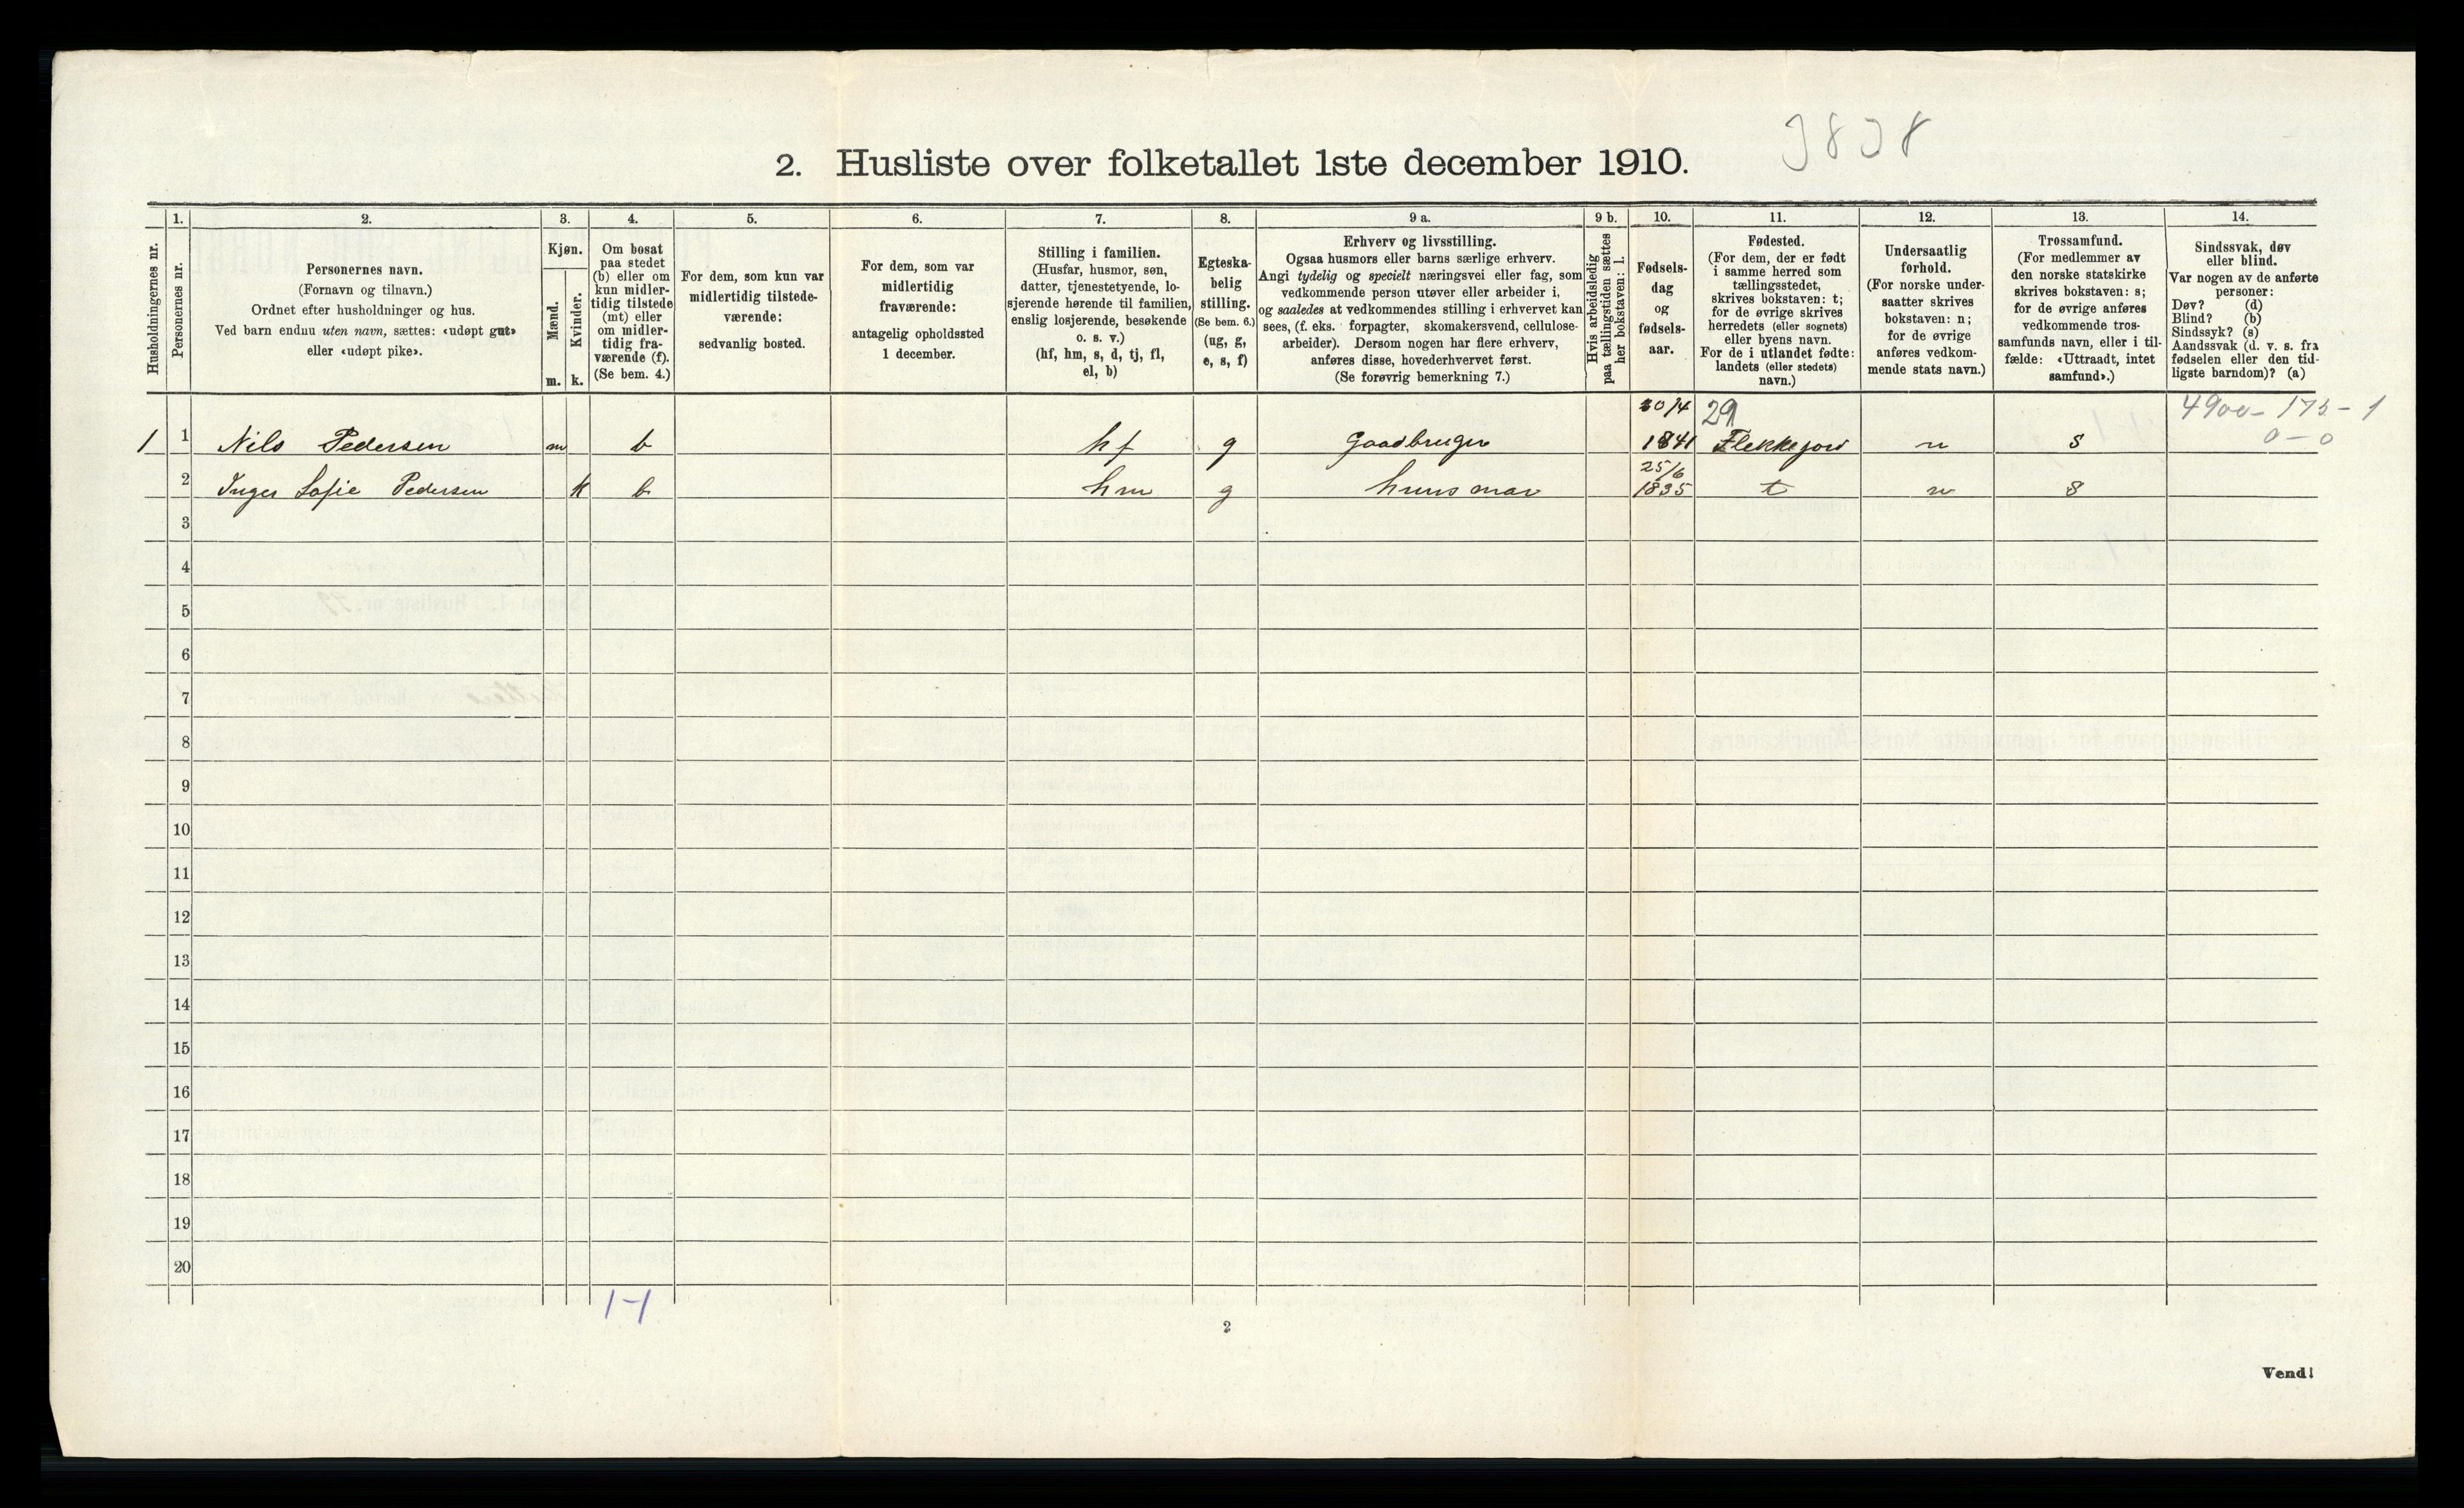 3838
2. Husliste over folketallet 1ste december 1910.
Husholdningernes nr.
1.
Personernes nr.
2.
Personernes navn.
(Fornavn og tilnavn.)
Ordnet efter husholdninger og hus.
Ved barn endnu uten navn, sættes: «udøpt gut»
eller «udøpt pike».
3.
Kjøn.
Mænd.
Kvinder.
m. k.
4.
Om bosat
paa stedet
(b) eller om
kun midler-
tidig tilstede
(mt) eller
om midler-
tidig fra-
værende (f).
(Se bem. 4.)
5.
For dem, som kun var
midlertidig tilstede-
værende:
sedvanlig bosted.
6.
For dem, som var
midlertidig
fraværende:
antagelig opholdssted
1 december.
7.
Stilling i familien.
(Husfar, husmor, søn,
datter, tjenestetyende, lo-
sjerende hørende til familien,
enslig losjerende, besøkende
o. s. v.)
(hf, hm, s, d, tj, fl,
el, b)
8.
Egteska-
belig
stilling.
(Se bem. 6.)
(ug, g,
e, s, f)
9 a.
Erhverv og livsstilling.
Ogsaa husmors eller barns særlige erhverv.
Angi tydelig og specielt næringsvei eller fag, som
vedkommende person utøver eller arbeider i,
og saaledes at vedkommendes stilling i erhvervet kan
sees, (f. eks. forpagter, skomakersvend, cellulose-
arbeider). Dersom nogen har flere erhverv,
anføres disse, hovederhvervet først.
(Se forøvrig bemerkning 7.)
9 b.
Hvis arbeidsledig
paa tællingstiden sættes
her bokstaven: l.
10.
Fødsels-
dag
og
fødsels-
aar.
11.
Fødested.
(For dem, der er født
i samme herred som
tællingsstedet,
skrives bokstaven: t;
for de øvrige skrives
herredets (eller sognets)
eller byens navn.
For de i utlandet fødte:
landets (eller stedets)
navn.)
12.
Undersaatlig
forhold.
(For norske under-
saatter skrives
bokstaven: n;
for de øvrige
anføres vedkom-
mende stats navn.)
13.
Trossamfund.
(For medlemmer av
den norske statskirke
skrives bokstaven: s;
for de øvrige anføres
vedkommende tros-
samfunds navn, eller i til-
fælde: «Uttraadt, intet
samfund».)
14.
Sindssvak, døv
eller blind.
Var nogen av de anførte
personer:
Døv? (d)
Blind? (b)
Sindssyk? (s)
Aandssvak (d. v. s. fra
fødselen eller den tid-
ligste barndom)? (a)
29
4900-175-1
0-0
1 1 Nils Pedersen m b hf g Gaadbruger 1841 Flekkefjord n s
25/6
2 Inger Sofie Pedersen k b hm g huusmor 1835 t n s
3
4
5
6
7
8
9
10
11
12
13
14
15
16
17
18
19
20
1-1
2
Vend!